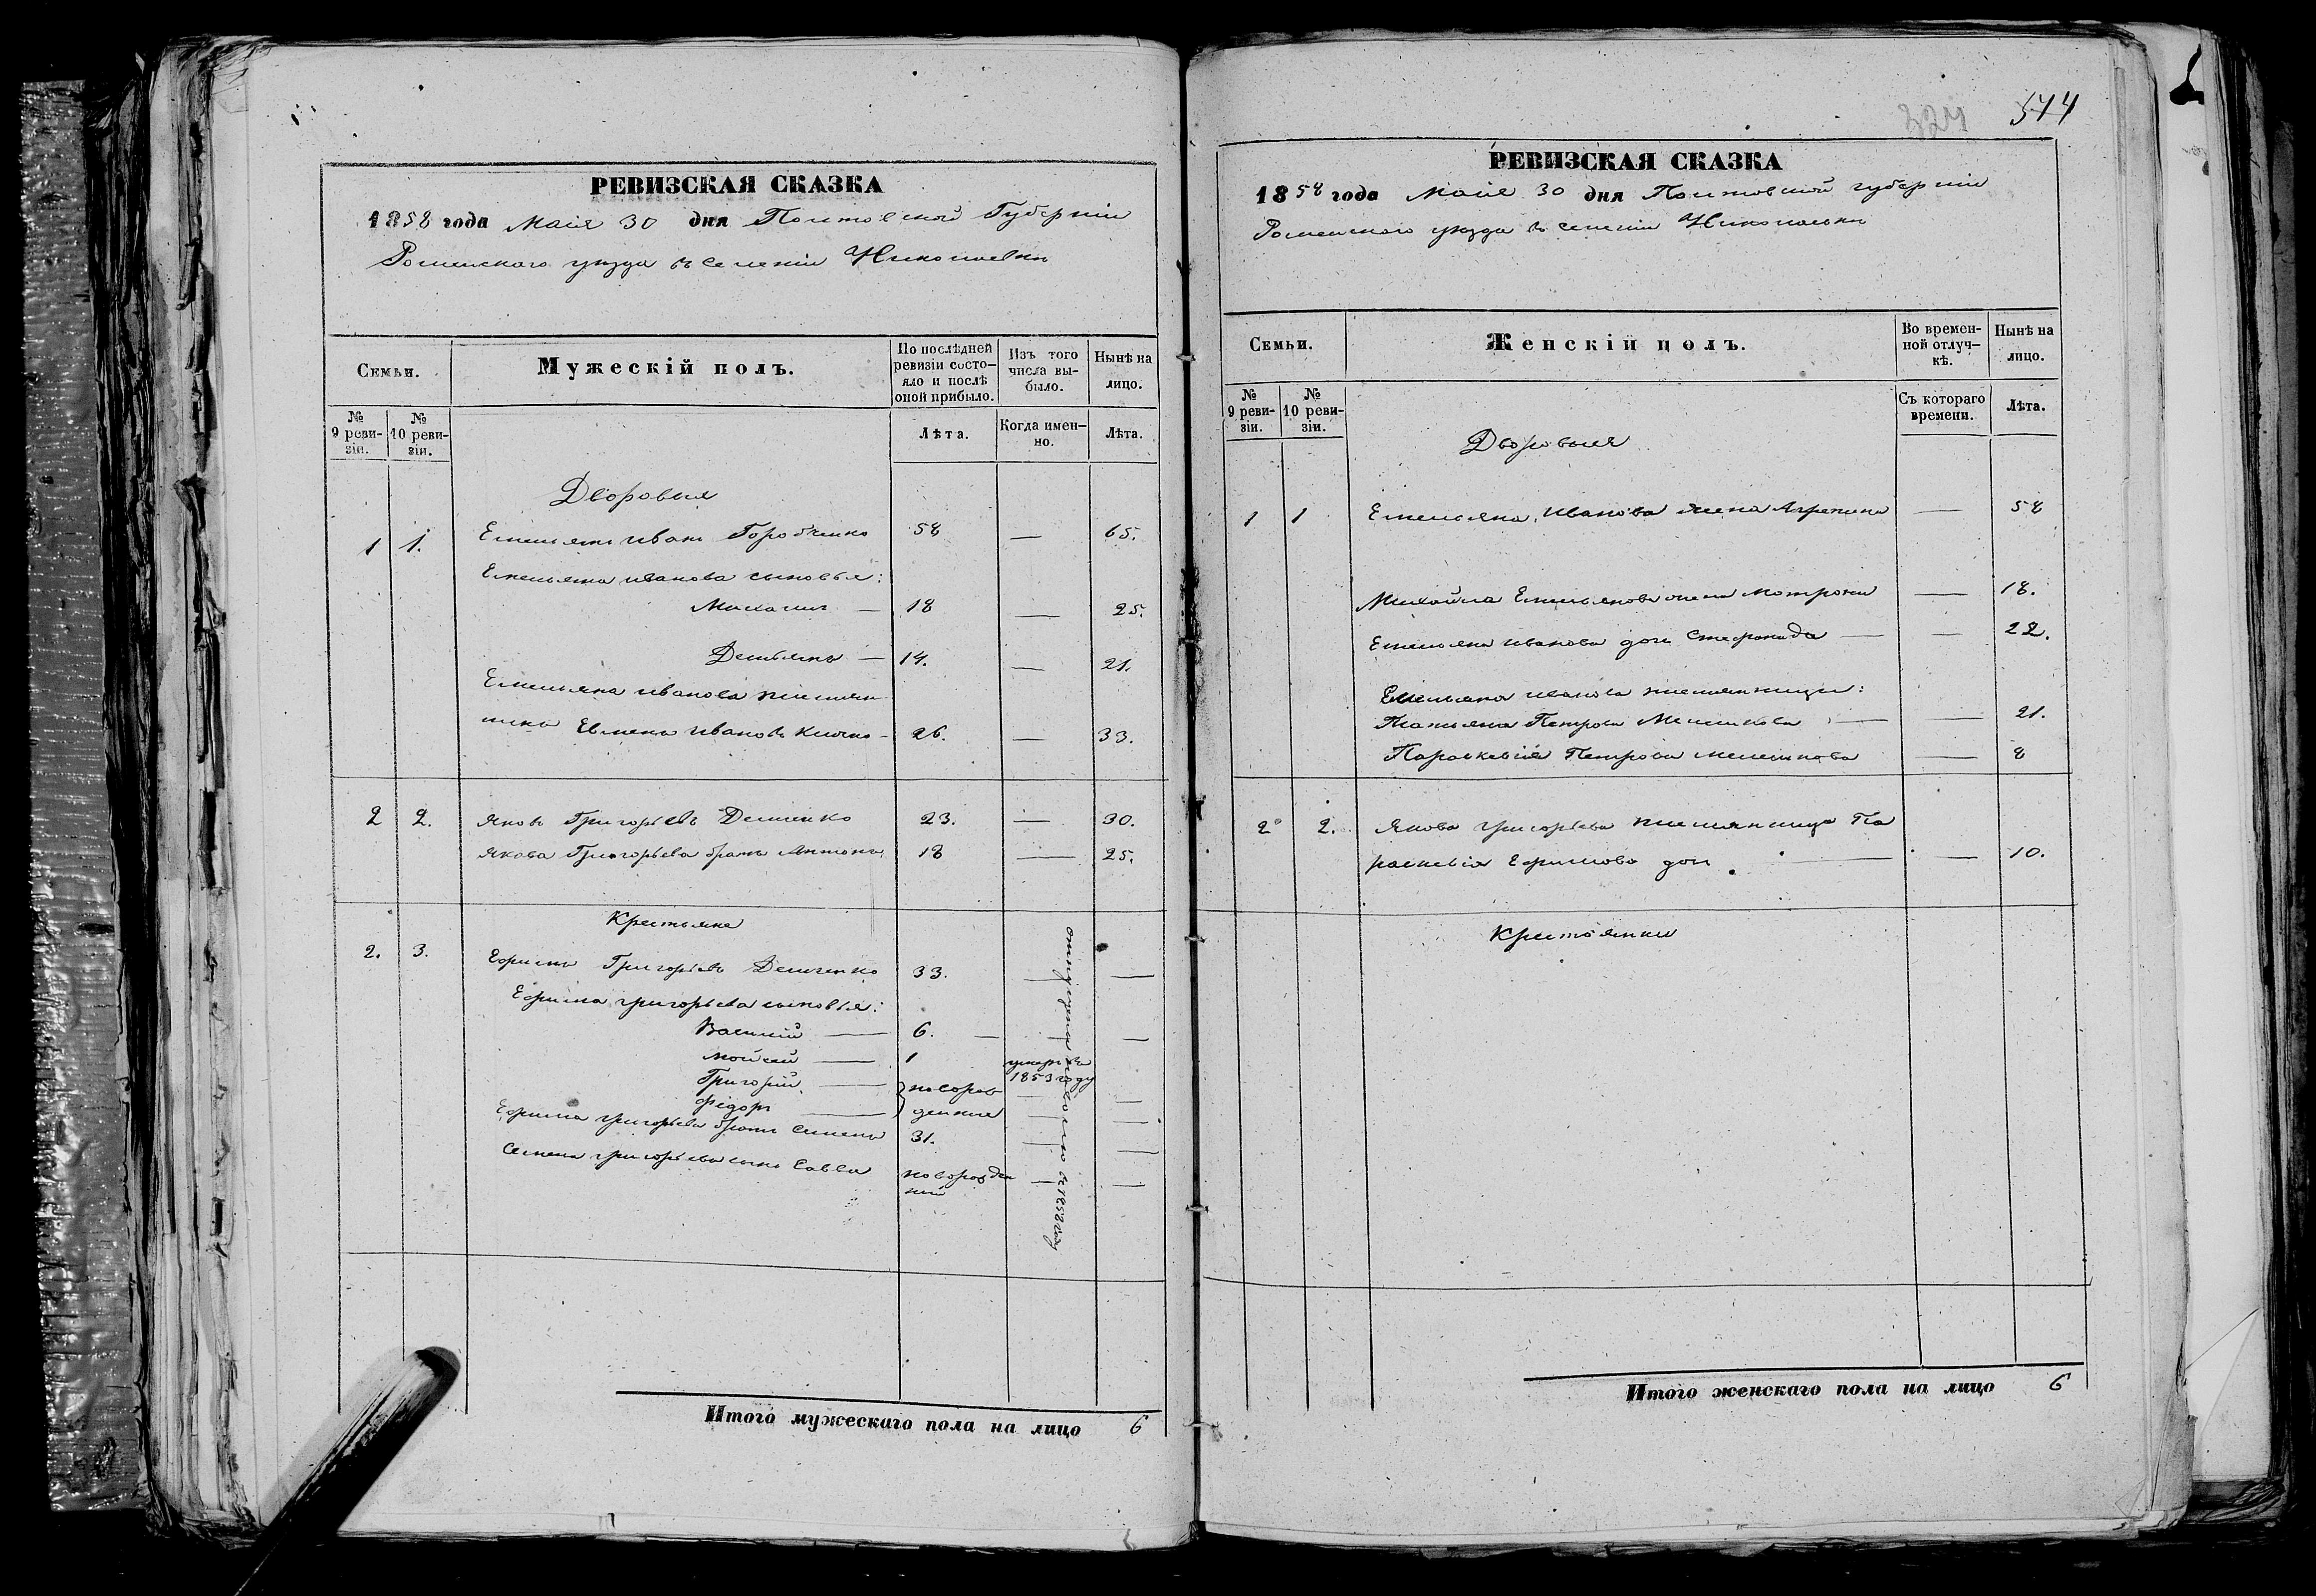 РЕВИЗСКАЯ СКАЗКА
1858 года Маія 30 дня Полтавской Губерніи
Роменскаго уезда въ селеніи Николаевки
Семьи.
Мужескій полъ.
По послѣдней ревизіи состо-
яло и послѣ
оной прибыло.
Изъ того
числа вы-
было.
Нынѣ на
лицо.
№
9 реви-
зіи.
№
10 реви-
зіи.
Лѣта.
Когда имен-
но.
Лѣта.
Дворовыя
1 1. Емельянъ Иванъ Горобченко 58 — 65.
Емельяна Иванова сыновья:
Михаилъ — 18 — 25.
Демьянъ — 14. — 21.
Емельяна Иванова племян
никъ Евменъ Ивановъ 26. — 33.
2 2. Яковъ Григорьевъ Демченко 23. — 30.
Якова Григорьева братъ Антонъ 18 — 25.
Крестьяне
2. 3. Ефимъ Григорьевъ Демченко 33. — —
Ефима Григорьева сыновья:
Василій — 6. — —
Мойсей — 1 умеръ въ
1853 году
Григорій — новорож
Федоръ — денные — —
Ефима Григорьева братъ Семенъ 31. — —
Семена Григорьева сынъ Савва новорожден
ный — —
отпущены на волю въ 1858 году
Итого мужескаго пола на лицо 6
324 574
РЕВИЗСКАЯ СКАЗКА
1858 года Маія 30 дня Полтавской губерніи
Роменского уезда въ селеніи Николаевки
Семьи.
Женскій полъ.
Во времен-
ной отлуч-
кѣ.
Нынѣ на
лицо.
№
9 реви-
зіи.
№
10 реви-
зіи.
Съ котораго
времени.
Лѣта.
Дворовыя
1 1 Емельяна Иванова жена Агрепина — 58
Михайла Емельянова жена Мотрона — 18.
Емельяна Иванова дочь Стефанида — — 22.
Емельяна Иванова племянницы:
Татьяна Петрова — — 21.
Параскевія Петрова — 8
2 2. Якова Григорьева племянница Па
раскевія Ефимова дочь — — 10.
Крестьянки
Итого женскаго пола на лицо 6